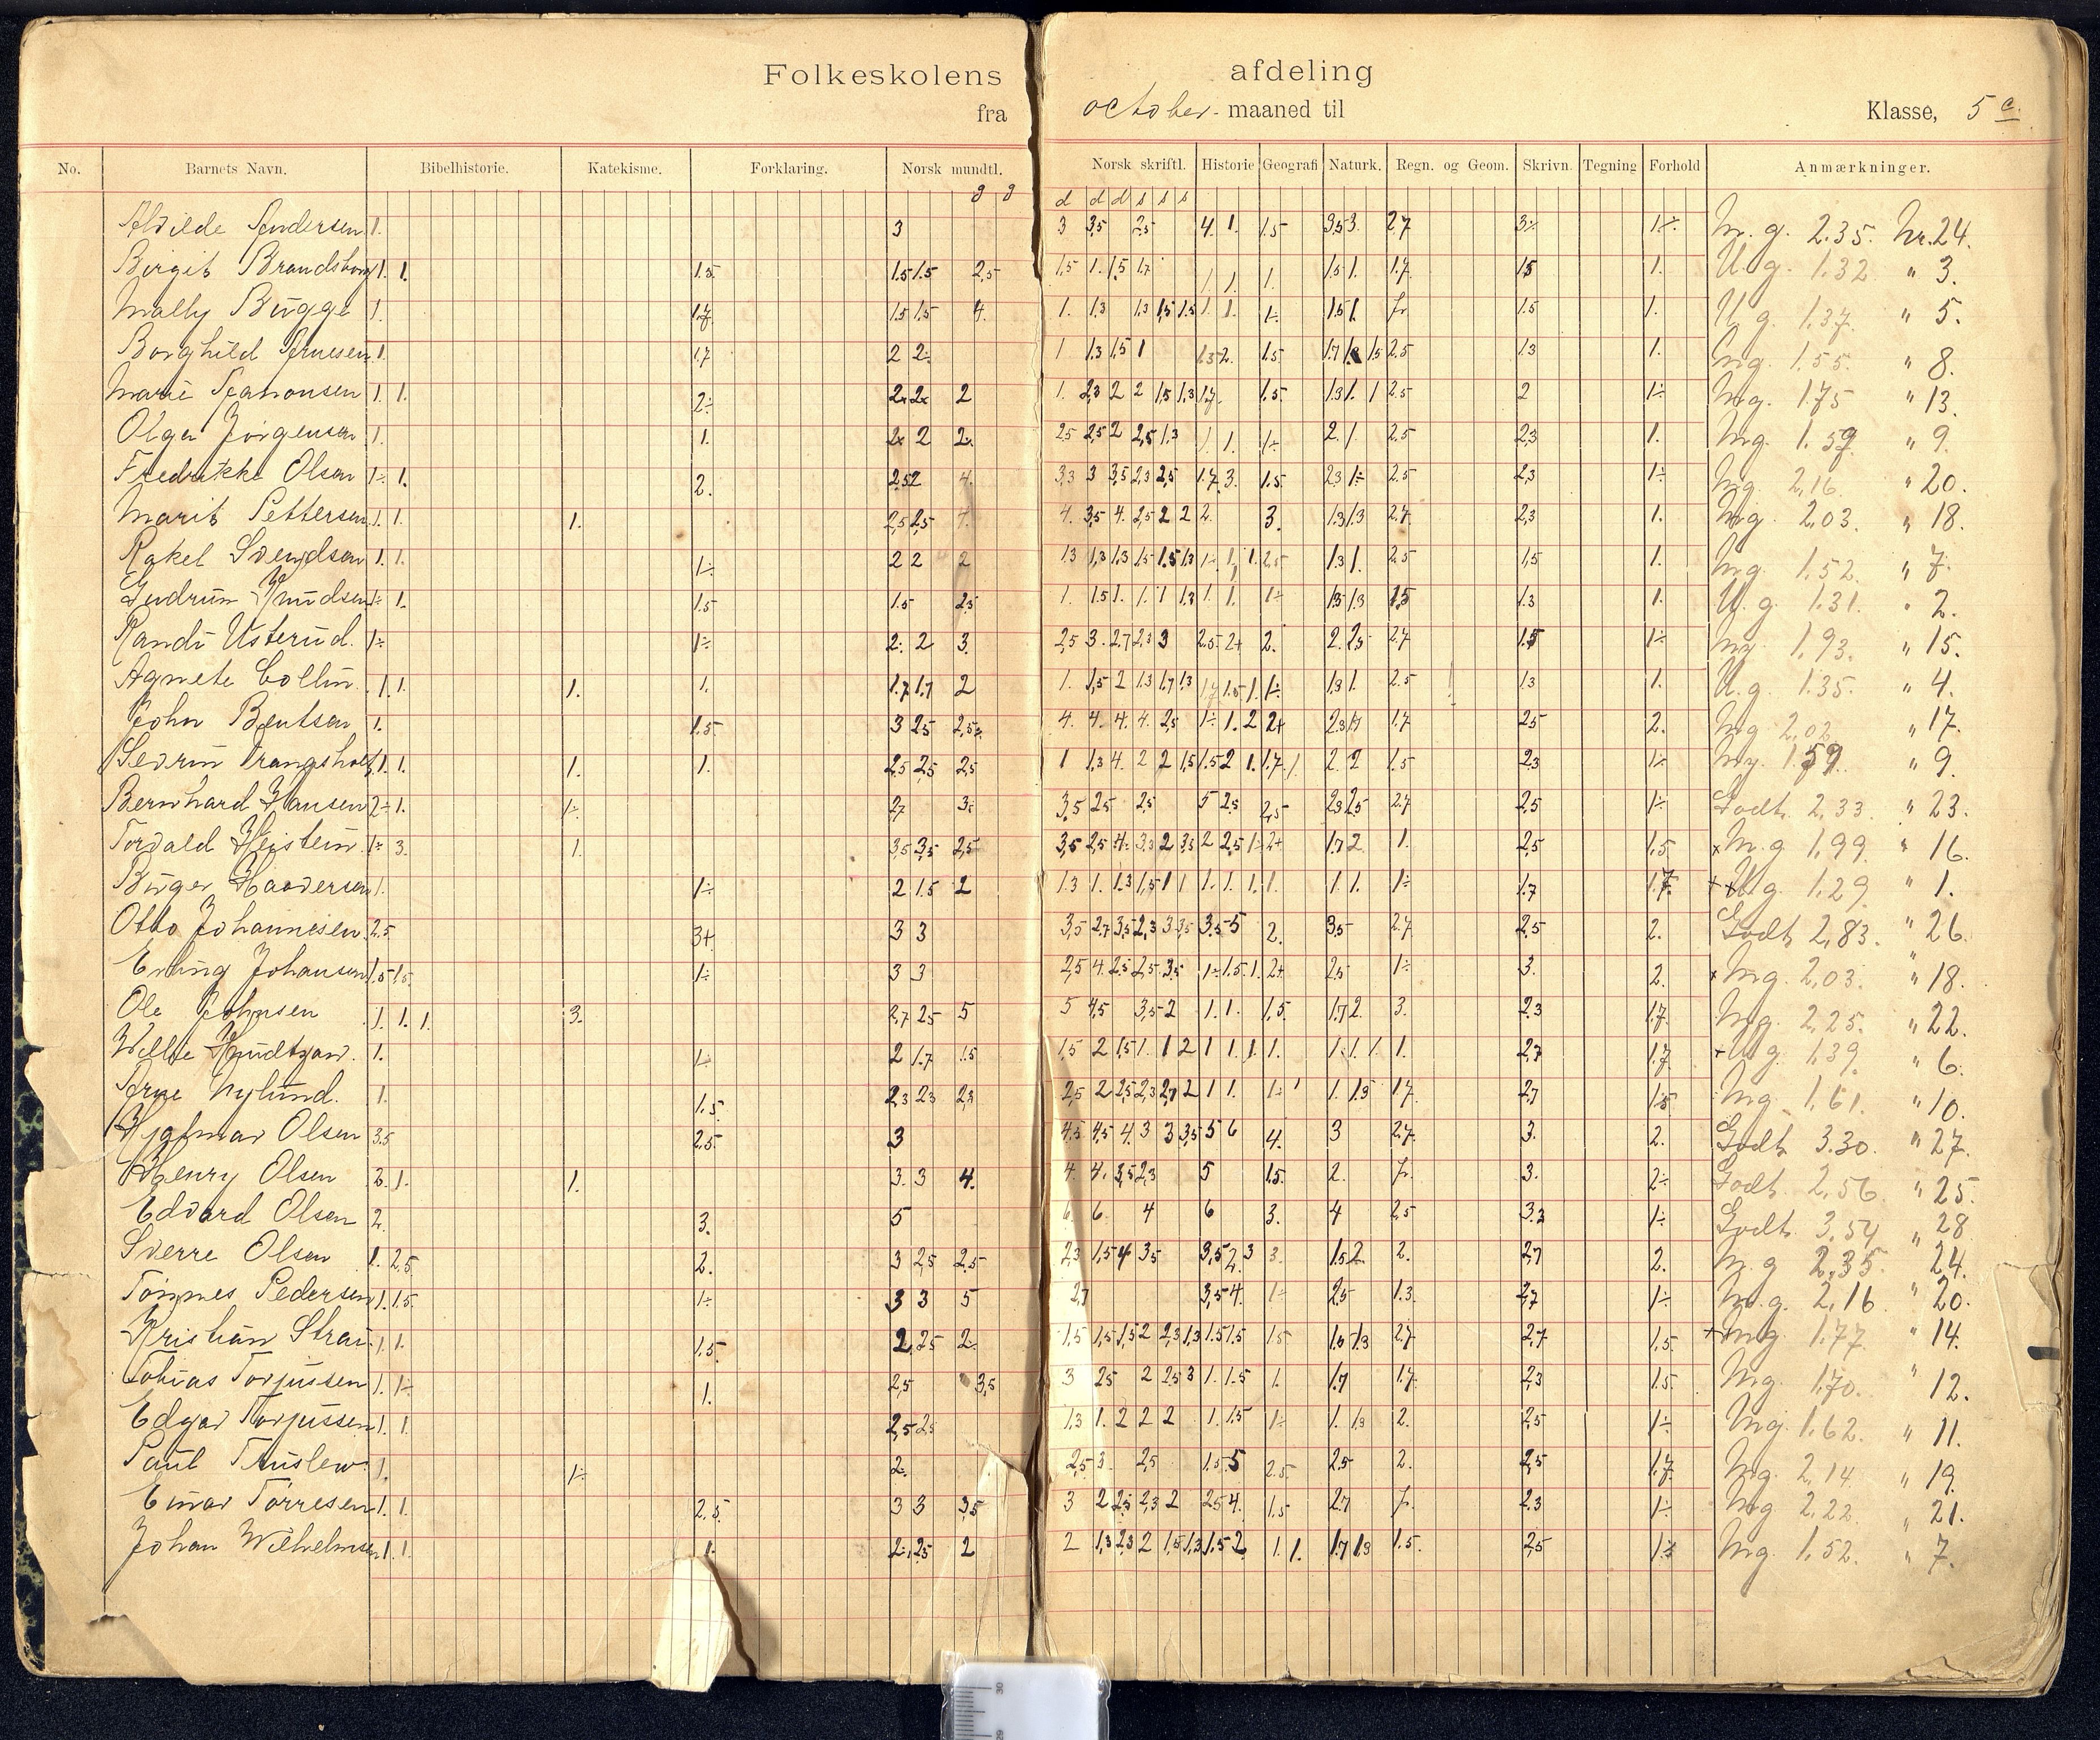 Folkeskolens afdeling
fra october. maaned til Klasse, 5 c.
No. Barnets Navn. Bibelhistorie. Katekisme. Forklaring. Norsk mundtl. Norsk skriftl. Historie Geografi Naturk. Regn. og Geom. Skrivn. Tegning Forhold Anmærkninger.
g g d d d s s s
Alvilde Andersen 1. 3 3 3,5 2,5 4. 1. 1.5 3,5 3. 2.7 3÷ 1÷. M. g. 2.35. Nr. 24.
Birgit 1. 1. 1.5 1.5 1.5 2,5 1,5 1. 1.5 1.7 1. 1. 1. 1.5 1. 1.7 1.5 1. U. g. 1.32 " 3.
Mally Bugge 1. 1.7 1.5 1.5 4. 1. 1.3 1.3 1,5 1.5 1. 1. 1÷ 1.5 1. 1.5 1. U g. 1.37. " 5.
Borghild Arnesen 1. 1.7 2 2. 1 1.3 1.5 1 1.5 2. 1.5 1.7 1.5 2.5 1.3 1. Mg. 1.55. " 8.
Marie 1. 1. 2÷ 2 2 2 1. 2,3 2 2 1,5 1.3 1.7. 1.5. 1.3 1. 1 2.5 2 1÷ Mg. 1.75 " 13.
Olga Jørgensen 1. 1. 2 2 2 2.5 2,5 2 2,5 1.3 1. 1. 1÷ 2. 1. 2.5 2,3 1. Mg. 1.59 " 9.
Fredrikke Olsen 1÷ 1. 2. 2,5 2 4. 3,3 3 3,5 2,3 2,5 1.7 3. 1.5. 2.3 1÷ 2.5 2,3 1÷ Mg. 2,16. " 20.
Marit Pettersen 1. 1. 1. 2,5 2,5 4. 4. 3,5 4. 2,5 2 2 2. 3. 1.3 1.3 2.7. 2,3 1. Mg. 2.03. " 18.
Rakel Svendsen 1. 1. 1÷ 2 2 2 1.3 1,3 1.3 1.5 1.5 1.3 1÷ 1. 1. 2,5 1.3 1. 2.5 1,5 1. Mg. 1,52. " 7.
Gudrun Knudsen 1÷ 1. 1.5 1.5 2.5 1. 1.5 1. 1. 1 1.3 1. 1. 1÷ 1.5 1.3 1.5 1.3 1. U. g. 1.31. " 2.
Randi Usterud. 1÷ 1÷ 2. 2 3. 2,5 3. 2.7 2.3 3 2.5 2+ 2. 2. 2,5 2.7 1.5 1÷ Mg. 1.93. " 15.
Agnete Collin 1. 1. 1. 1. 1.7 1.7 2 1. 1,5 2 1.3 1.7 1.3 1.7 1.5 1. 1÷ 1.3 1. 2.5 1.3 1. U. g. 1.35. " 4.
John Bentsen 1. 1.5. 3 2.5 2,5÷ 4. 4. 4. 4. 2,5 1÷ 1. 2 2+ 2.3 1.7 1.7 2.5 2. Mg 2,02. " 17.
Severin 1. 1. 1. 1. 2,5 2,5 2,5 1 1,3 4. 2 2 1,5 1.5 2 1. 1.7. 2. 2 1.5 2.3 1÷ Mg. 1.59. " 9.
Bernhard Hansen 2÷ 1. 1÷. 2,7 3. 3,5 2.5 2,5 5 2.5 2,5 2,3 2,5 2.7 2.5 1÷ Godt. 2.33. " 23.
Torvald 1÷ 3. 1. 3,5 3,5 2,5 3,5 2,5 4. 3.3 2 3,5 2 2,5 1÷ 2+ 1.7 2 1. 2,5 1.5 x M. g 1,99. " 16.
Birger 1. 1÷ 2 1.5 2 1.3 1. 1.3 1,5 1 1 1. 1. 1. 1. 1. 1. 1÷ 1.7 1.7. + x U g. 1.29 " 1.
Otto Johannesen 2.5 3+ 3 3 3,5 2,7 3,5 2,3 3 3,5 3.5 5 2. 3,5 2.7 2.5 2. Godt 2,83. " 26.
Erling Johansen 1.5 1.5. 1÷ 3 3 2,5 4. 2.5 2,5 3,5 1÷ 1.5 1. 2+ 2,5 1÷ 3. 2. x Mg. 2,03. " 18.
Ole Johnsen 1. 1. 1. 3. 2,7 2.5 5 5 4,5 3,5 2 1. 1. 1,5. 1.7 2. 3. 2.3 1.7. Mg. 2,25. " 22.
1. 1÷ 2 1.7 1.5 1,5 2 1,5 1. 1 2 1 1. 1. 1. 1. 1. 1. 1. 2,7 1.7. + U g. 1.39. " 6.
Arne Nylund. 1. 1.5 2,3 2,3 2,3 2,5 2 2,5 2,3 2,7 2 1 1. 1÷ 1. 1.3 1.7. 2,7 1.5 Mg. 1,61. " 10.
Hjalmar Olsen 3.5 2.5 3 4.5 4,5 4. 3 3 3,5 5 6 4. 3 2.7. 3. 2. Godt 3.30. " 27.
Henry Olsen 3. 1. 1. 3. 3 4. 4. 4. 3,5 2,3 5 1.5. 2. 3. 2÷ Godt. 2,56. " 25.
Edvard Olsen 2. 3. 5 6. 6. 4 6 3. 4 2.5 3.3 1÷ Godt. 3,54 " 28
Sverre Olsen 1. 2.5. 2. 3 2,5 2,5 2,3 1,5 4 3,5 3,5 2. 3 3. 1.5 2. 2. 2,7 2. M. g 2,35. 24.
Tønnes Pedersen 1. 1.5. 1÷ 3 3 5 2,7 3,5 4. 1÷ 2.5 1.3. 2,7 1÷ M. g. 2,16. " 20.
Kristian Strai 1. 1. 1,5. 2 2,5 2. 1,5 1,5 1,5 2 2,3 1,3 1.5 1.5 1.5 1.3 2.7 2.7 1.5. + Mg. 1.77. " 14.
Tobias Torjussen 1. 1÷ 1. 2,5 3,5 3 2,5 2 2,5 3 1. 1.5 1. 1.7 1.7. 2,3 1.5. Mg. 1,70. " 12.
Edgar Torjussen 1. 1. 2,5 2,5 1.3 1. 2 2 2 1. 1.5 1÷ 1. 1.3 2. 2,5 1÷ Mg. 1.62. " 11.
Paul 1. 1÷ 2. 2,5 3. 2,5 1.5 5 2.5. 2.5 2. 2,5 1.7. Mg. 2,14. " 19.
Einar Tørresen 1. 1. 2,5. 3 3 3,5 3 2 2,5 2,3 2 2.5 4. 1,5 2.7 2.3 1÷ Mg 2,22. " 21.
Johan Wilhelmsen 1. 1. 1. 2÷ 2,5 2 2 1,3 2,3 2 1,5 1,3 1.5 2 1. 1. 1.7 1.3 1.5. 2,5 Mg. 1,52. " 7.
30
29